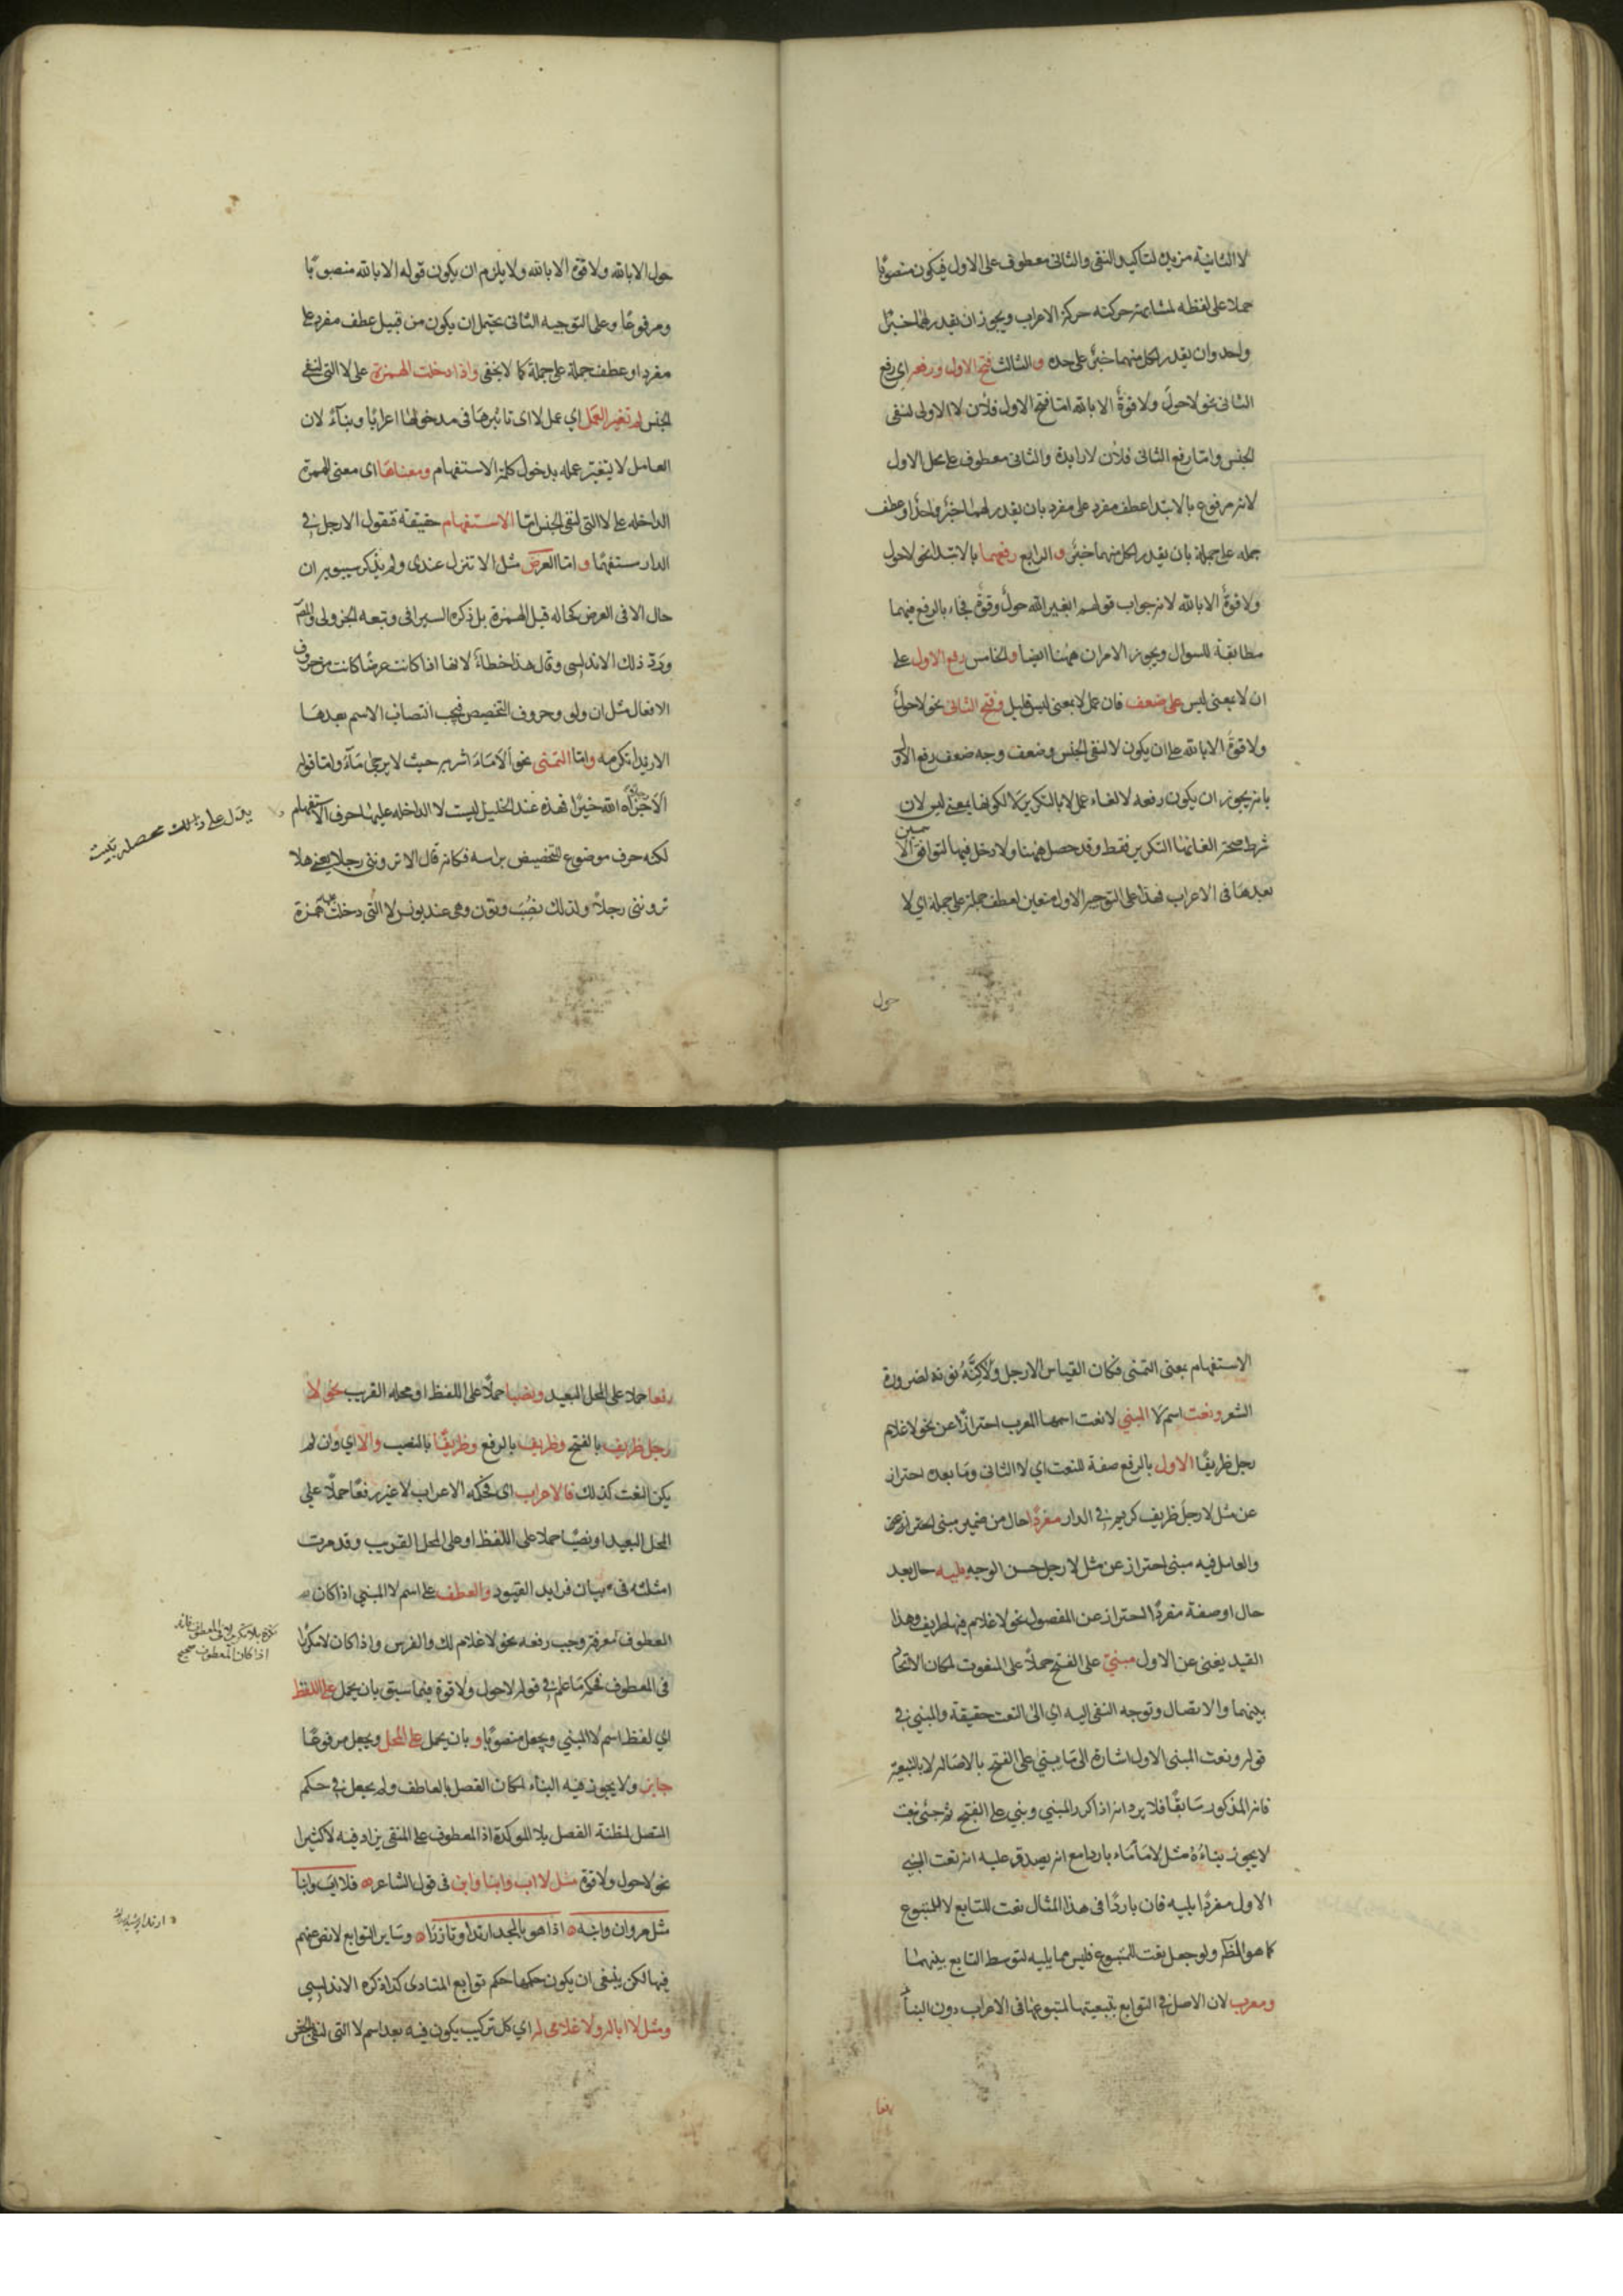 لا الثانية مزيدة لتاكيد النفى والثانى معطوف على الاول فيكون منصوبًا
حملا على لفظه لمشابهة حركته حركة الاعراب ويجوز ان يقدر لهما خبرٌ
واحد وان يقدر لكل منهما خبرٌ على حده والثالث فتح الاول ورفعه اى رفع
الثانى نحو لاحولَ ولا قوةٌ الا بالله امّا فتح الاول فلأن لا الاولى لنفى
الجنس وامّا رفع الثانى فلأن لا زايدة والثانى معطوف على محل الاول
لانه مرفوع بالابتدا عطف مفرد على مفرد بان يقدر لهما خبرٌ واحدٌ او عطف
جمله على جملة بان يقدر لكل منهما خبرٌ والرابع رفعهما بالابتدا نحو لاحول
ولا قوةٌ الا بالله لانه جواب قولهم ابغير الله حولٌ وقوةٌ فجاء بالرفع فيهما
مطابقة للسوال ويجوز الامران ههنا ايضا والخامس رفع الاول على
ان لا بمعنى ليس على ضعف فان عمل لا بمعنى ليس قليل وفتح الثانى نحو لاحولٌ
ولا قوةَ الا بالله على ان يكون لا لنفى الجنس وضعف وجه ضعف رفع الاول
بانه يجوز ان يكون رفعه لالغاء عمل لا بالتكرير لا لكونها بمعنى ليس لان
شرط صحة الغائها التكرير فقط وقد حصل ههنا ولا دخل فيها لتوافق الاسمين
بعدها فى الاعراب فهذا على التوجيه الاول متعين لعطف جملة على جملة اى لا
حول
حول الا بالله ولا قوة الا بالله ولا يلزم ان يكون قوله الا بالله منصوبًا
ومرفوعًا وعلى التوجيه الثانى يحتمل ان يكون من قبيل عطف مفرد على
مفرد او عطف جملة على جملة كما لا يخفى واذا دخلت الهمزة على لا التى لنفى
الجنس لم تغير العمل اى عمل لا اى تاثيرها فى مدخولها اعرابًا وبناءً لان
العامل لا يتغير عمله بدخول كلمة الاستفهام ومعناها اى معنى الهمزة
الداخله على لا التى لنفى الجنس امّا الاستفهام حقيقة فتقول الا رجل فى
الدار مستفهمًا واما العرض مثل الا تنزل عندى ولم يذكر سيبويه ان
حال الا فى العرض كحاله قبل الهمزة بل ذكره السيرافى وتبعه الجزولى والمص
وردّ ذلك الاندلسى وقال هذا خطاء لانها اذا كانت عرضًا كانت من حروف
الافعال مثل ان ولو وحروف التخصيص فيجب انتصاب الاسم بعدها
الا زيدًا تكرمه وامّا التمنى نحو ألا ماءَ اشربه حيث لا يرجى ماءٌ وامّا قوله
ألا جزاه الله خيرًا فهذه عند الخليل ليست لا الداخله عليها حرف الاستفهام
يدل على محصلة تبيت
لكنه حرف موضوع للتخصيص براسه فكانه قال الا تروننى رجلا يعنى هلا
تروننى رجلاً ولذلك نصب ونون وهى عند يونس لا التى دخلت همزة
الاستفهام بمعنى التمنى فكان القياس الا رجل ولكنَّهُ نونه لضرورة
الشعر ونعت اسم لا المبنى لا نعت اسمها المعرب احترازًا عن نحو لا غلام
رجل ظريفًا الاول بالرفع صفة للنعت اى لا الثانى وما بعده احتراز
عن مثل لا رجلَ ظريف كريم فى الدار مفردًا حال من ضمير مبنى احتراز عن
والعامل فيه مبنى احتراز عن مثل لا رجل حسن الوجه يليه حال بعد
حال او صفة مفردًا احتراز عن المفصول نحو لا غلام فيها ظريف وهذا
القيد يغنى عن الاول مبنىّ على الفتح حملاً على المنعوت لمكان الاتحاد
بينهما والاتصال وتوجه النفى اليه اى الى النعت حقيقة والمبنى فى
قوله ونعت المبنى الاول اشارة الى ما يبنى على الفتح بالاصالة لا بالتبعية
فانه المذكور سابقًا فلا يرد انه اذا كرر المبنى وبنى على الفتح ثم جئ بنعت
لا يجوز بناءه مثل لا ماءَ ماء باردا مع انه يصدق عليه انه نعت المبنى
الاول مفردًا يليه فان باردًا فى هذا المثال نعت للتابع لا للمتبوع
كما هو الظاهر ولو جعل نعت للمتبوع فليس مما يليه لتوسط التابع بينهما
ومعرب لان الاصل فى التوابع تبعيتها لمتبوعها فى الاعراب دون البناء
رفعا
رفعا حملا على المحل البعيد ونصبا حملاً على اللفظ او محله القريب نحو لا
رجل ظريف بالفتح وظريف بالرفع وظريفًا بالنصب والا اى وان لم
يكن النعت كذلك فالاعراب اى فحكمه الاعراب لا غير رفعًا حملاً على
المحل البعيد او نصبًا حملا على اللفظ او على المحل القريب وقد مرت
امثلته فى بيان فوايد القيود والعطف على اسم لا المبنى اذا كان
نكرة بلا تكرير لا فى المعطوف فانه
اذا كان المعطوف صحيح
المعطوف معرفة وجب رفعه نحو لا غلام لك والفرس واذا كان لا مكررًا
فى المعطوف فحكمه ما علم فى قوله لاحول ولا قوة فيما سبق بان يحمل على اللفظ
اى لفظ اسم لا المبنى ويجعل منصوبًا وبان يحمل على المحل ويجعل مرفوعًا
جايز ولا يجوز فيه البناء لمكان الفصل بالعاطف ولم يجعل فى حكم
المتصل لمظنة الفصل بلا الموكدة اذ المعطوف على المنفى يزاد فيه لا كثيرا
نحو لاحول ولا قوة مثل لا اب وابنا وابن فى قول الشاعر فلا اب وابنًا
مثل مروان وابنه اذا هو بالمجد ارتدا وتازرا وساير التوابع لا نص عنهم
فيها لكن ينبغى ان يكون حكمها حكم توابع المنادى كذا ذكره الاندلسى
ومثل لا ابا له ولا غلامى له اى كل تركيب يكون فيه بعد اسم لا التى لنفى الجنس